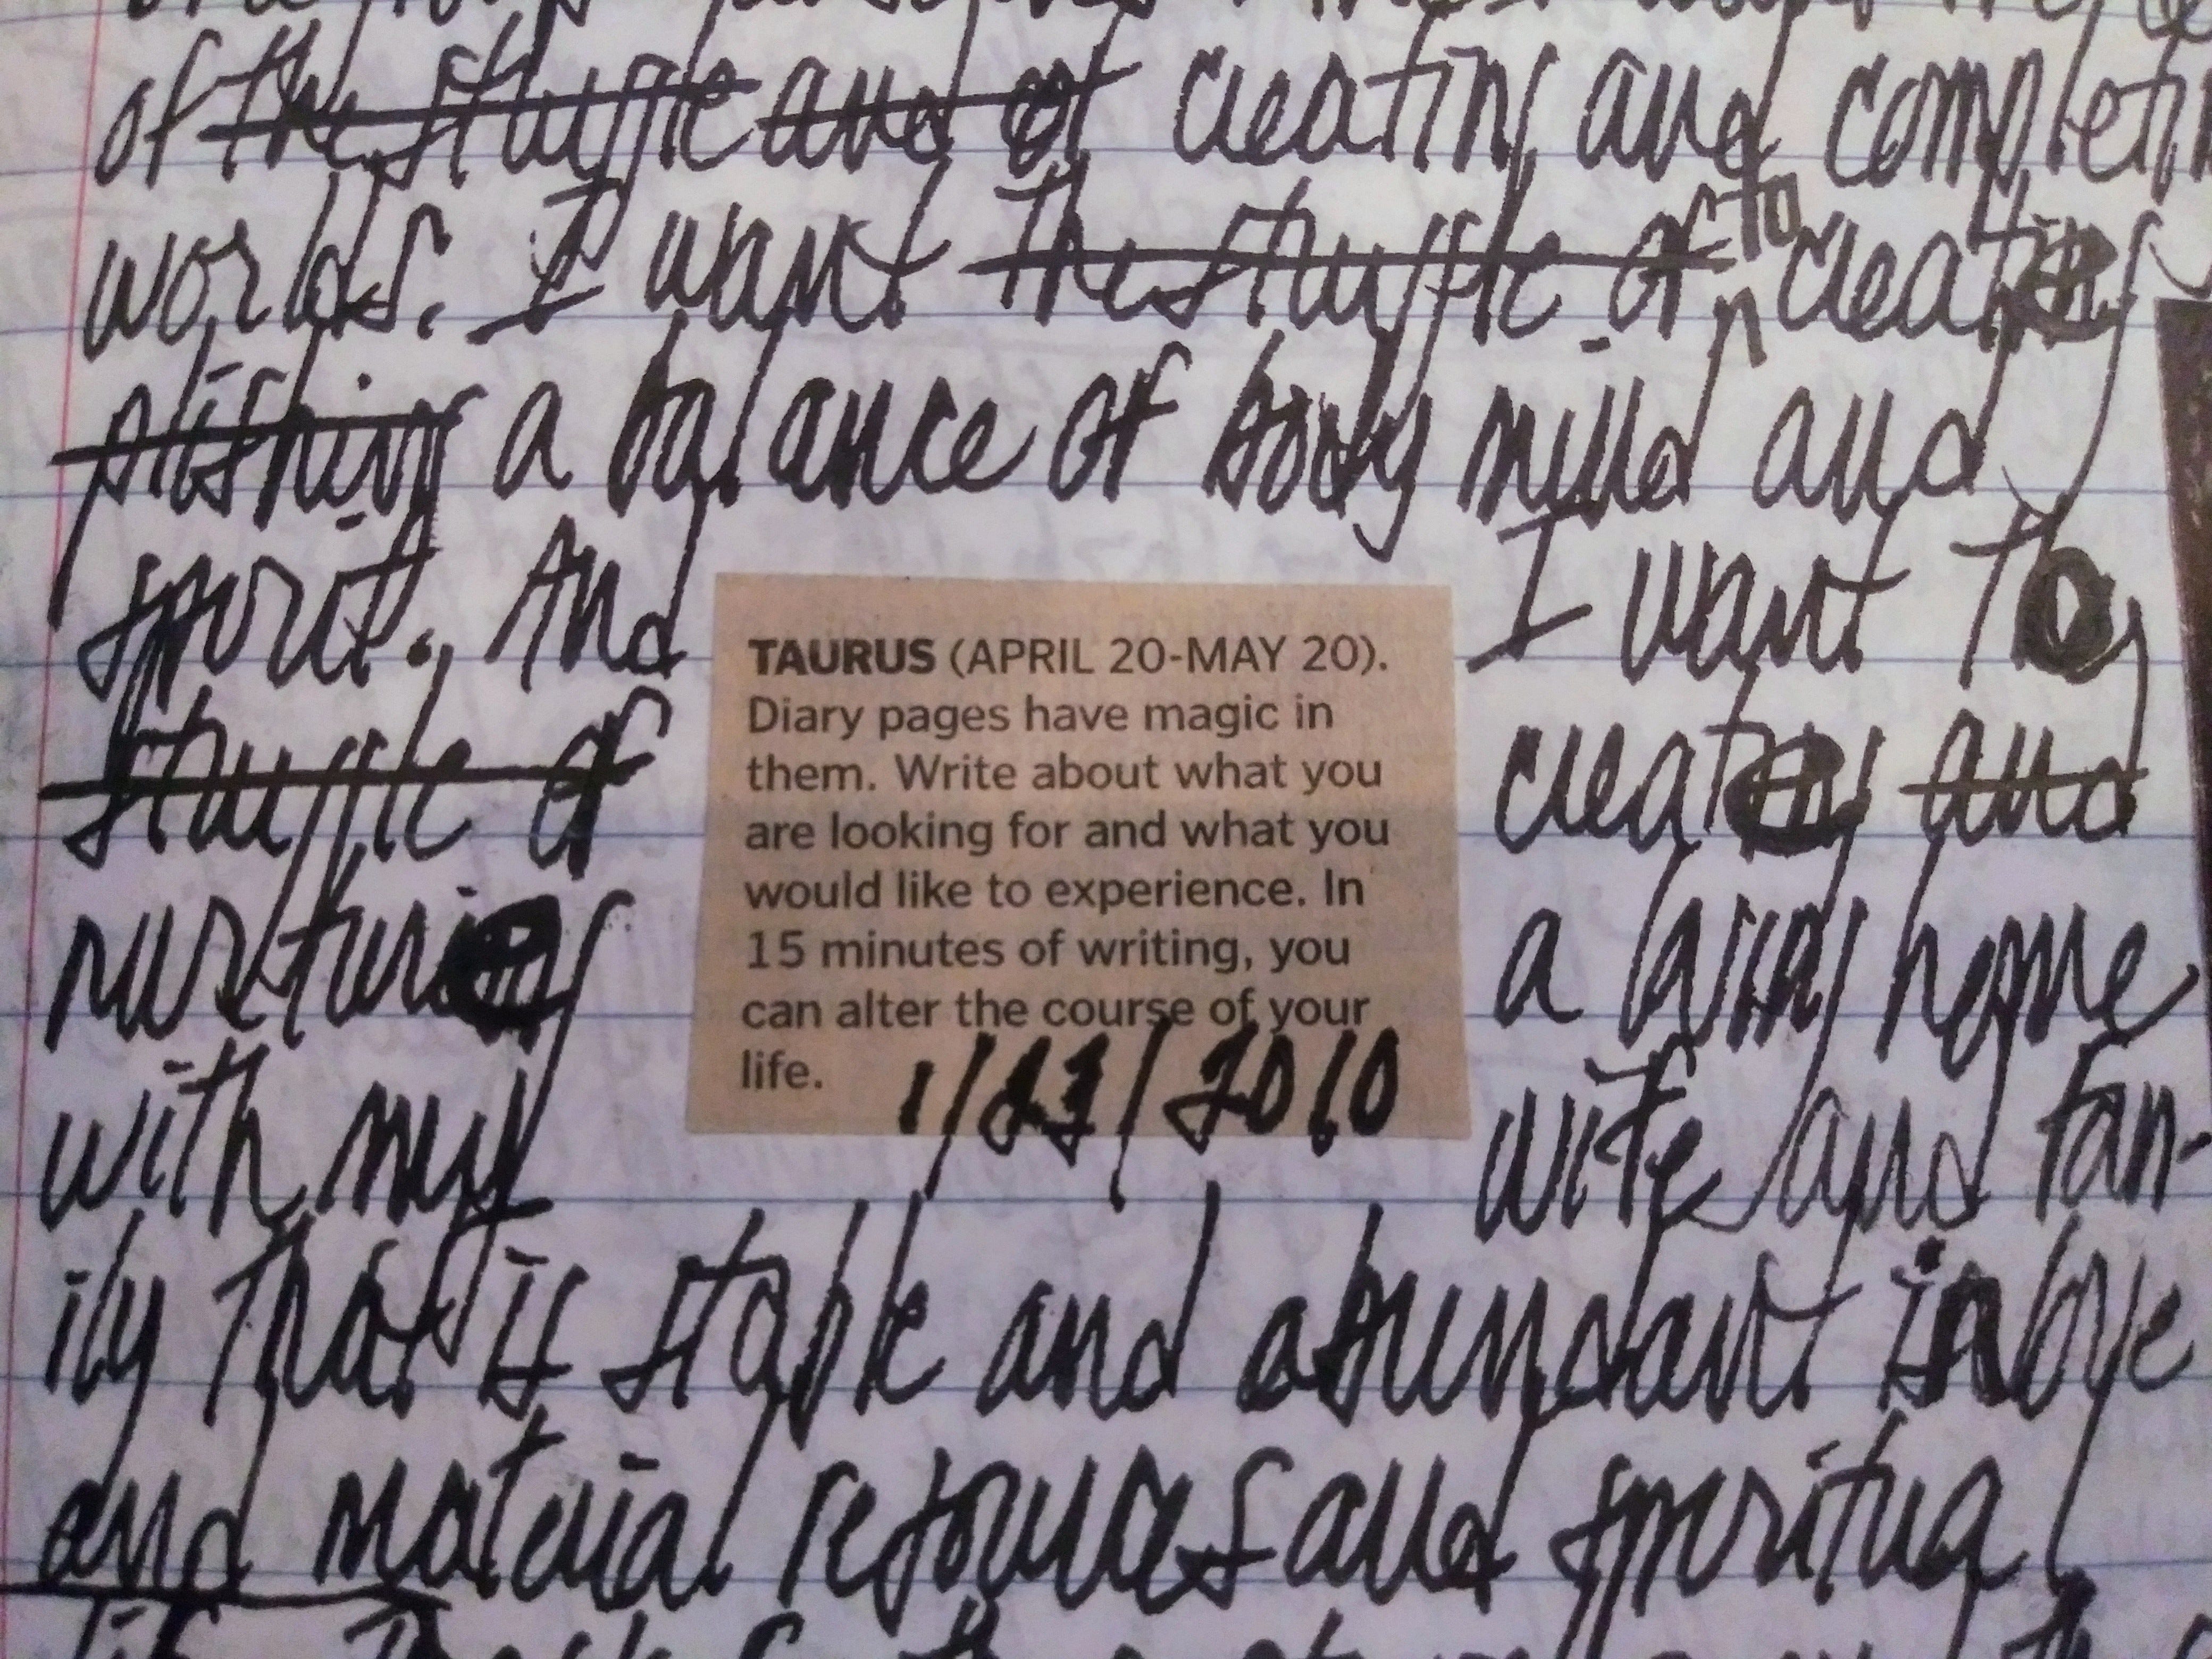 of the struggle and of creating and completin
worlds. I want the struggle of to creating
plishing a balance of body mind and
spirit. And I want to
struggle of creating and
nurturing a loving home
with my wife and fam-
ily that is stable and abundant in love
and material resources and spiritual
TAURUS (APRIL 20-MAY 20).
Diary pages have magic in
them. Write about what you
are looking for and what you
would like to experience. In
15 minutes of writing, you
can alter the course of your
life. 1/23/2010